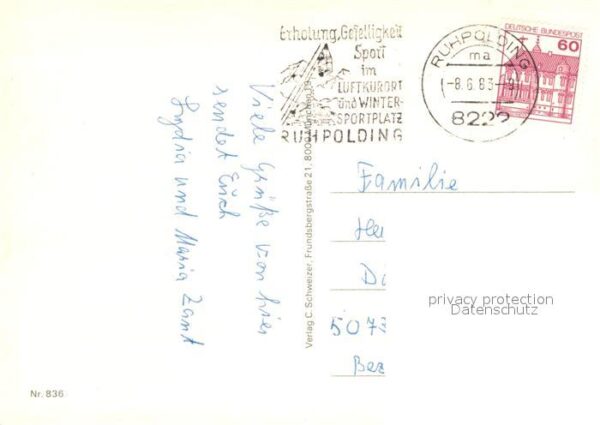 Erholung, Geselligkeit
Sport
im
LUFTKURORT
und WINTER-
SPORTPLATZ
RUHPOLDING
RUHPOLDING
ma
-8.6.83-
8222
DEUTSCHE BUNDESPOST
60
Viele Grüße von hier
sendet Euch
Lydia und Maria Zant
Verlag C. Schweizer, Frundsbergstraße 21, 8000 München
Familie
He
Di
507
Be
privacy protection
Datenschutz
Nr. 836